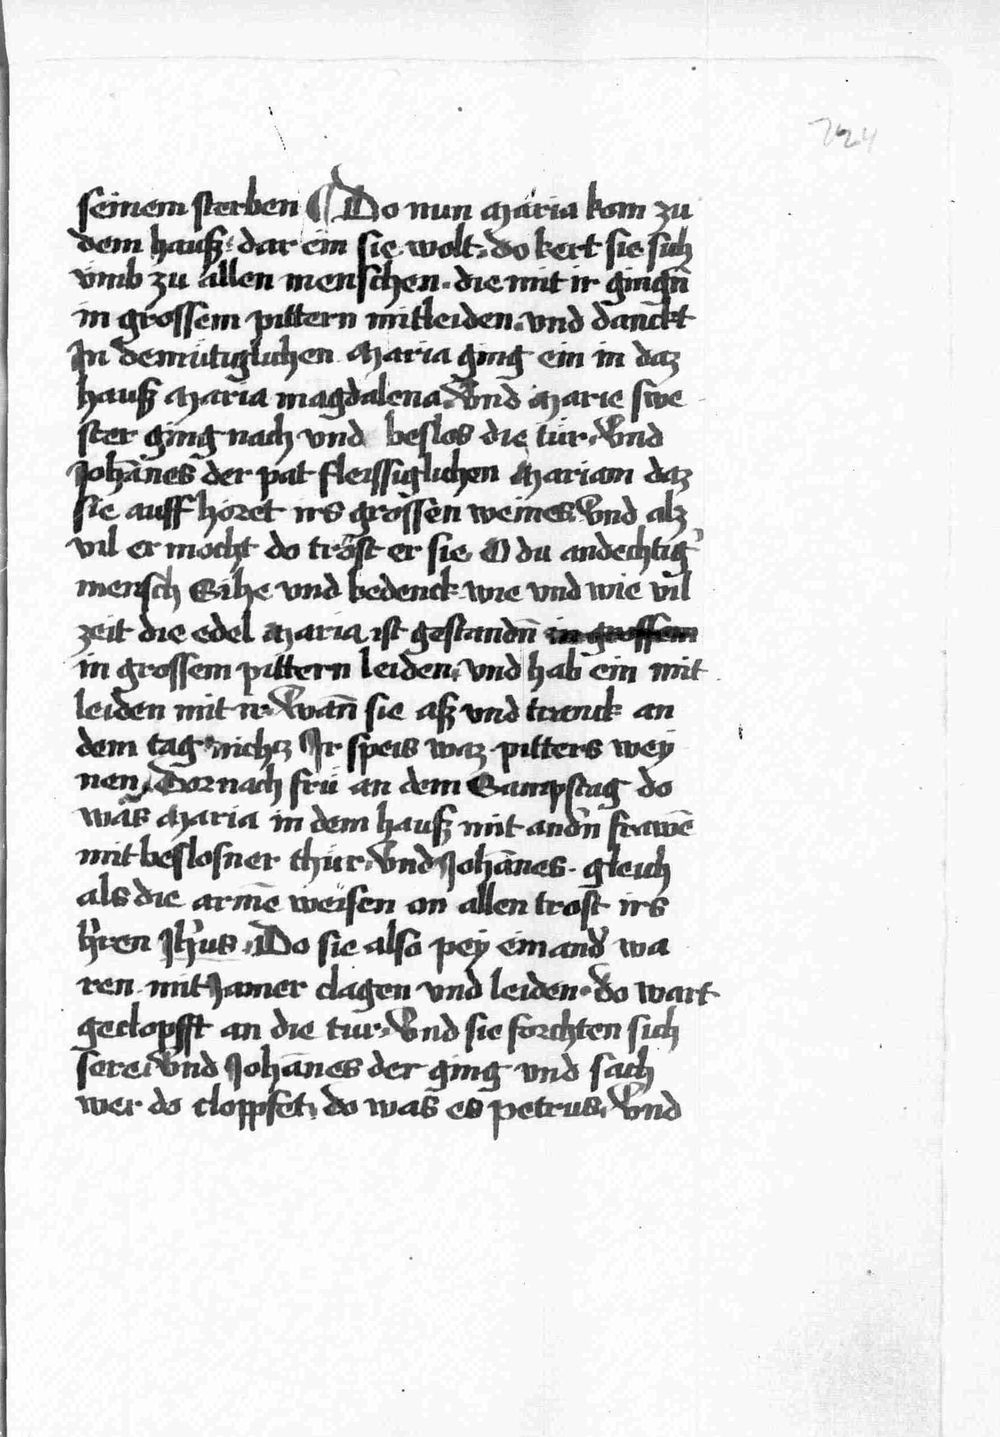 724
seinem sterben ¶ Do nun Maria kom zu
dem hauß · dar ein sie wolt · do kert sie sich
vmb zu allen menschen · die mit ir gingn̄
in grossem pittern mitleiden · vnd danckt
In demutiglichen Maria ging ein in daz
hauß Maria magdalena · Vnd Marie swe
ster ging nach vnd beslos die tür · Vnd
Joha̅nes der pat fleissiglichen Mariam daz
sie auff höret irs grossen weines · Vnd alz
vil er mocht do tröst er sie · O du andechtig᾿
mensch Sihe vnd bedenck wie vnd wie vil
zeit die edel Maria ist gestandn̄ in grossem
in grossem pittern leiden · vnd hab ein mit
leiden mit ir · Wan̄ sie aß vnd tranck an
dem tag nichcz Ir speis waz pitters wey
nen · Dornach frü an dem Sampstag do
was Maria in dem hauß mit and᾿n frawē
mit beslosner thür · Vnd Joha̅nes · gleich
als die armē weisen on allen trost irs
h᾿ren Jh᾿us · Do sie also pey einand᾿ wa
ren mit Jamer clagen vnd leiden · do wart
geclopfft an die tur · Vnd sie forchten sich
sere · Vnd Joha̅nes der ging vnd sach
wer do cloppfet · do was es petrus · Vnd